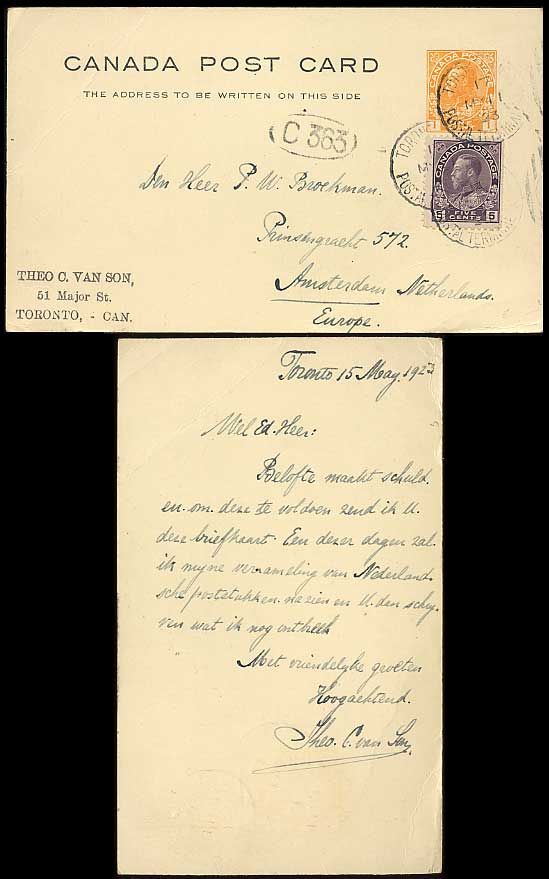 CANADA POST CARD
THE ADDRESS TO BE WRITTEN ON THIS SIDE
CANADA POSTAGE
1 1
C 363
TORONTO
17
MY
23
POSTAL TERMINAL
CANADA POSTAGE
5 FIVE CENTS 5
Den Heer P. W. Broekman.
Prinsengracht 572.
Amsterdam Netherlands.
Europe.
THEO C. VAN SON,
51 Major St.
TORONTO, - CAN.
Toronto 15 May. 1923
Wel Ed. Heer:
Belofte maakt schuld
en om deze te voldoen zend ik U.
deze briefkaart. Een dezer dagen zal
ik myne verzameling van Nederland
sche poststukken nazien en U. dan schry
ven wat ik nog ontbreek
Met vriendelyke groeten
Hoogachtend.
Theo. C. van Son